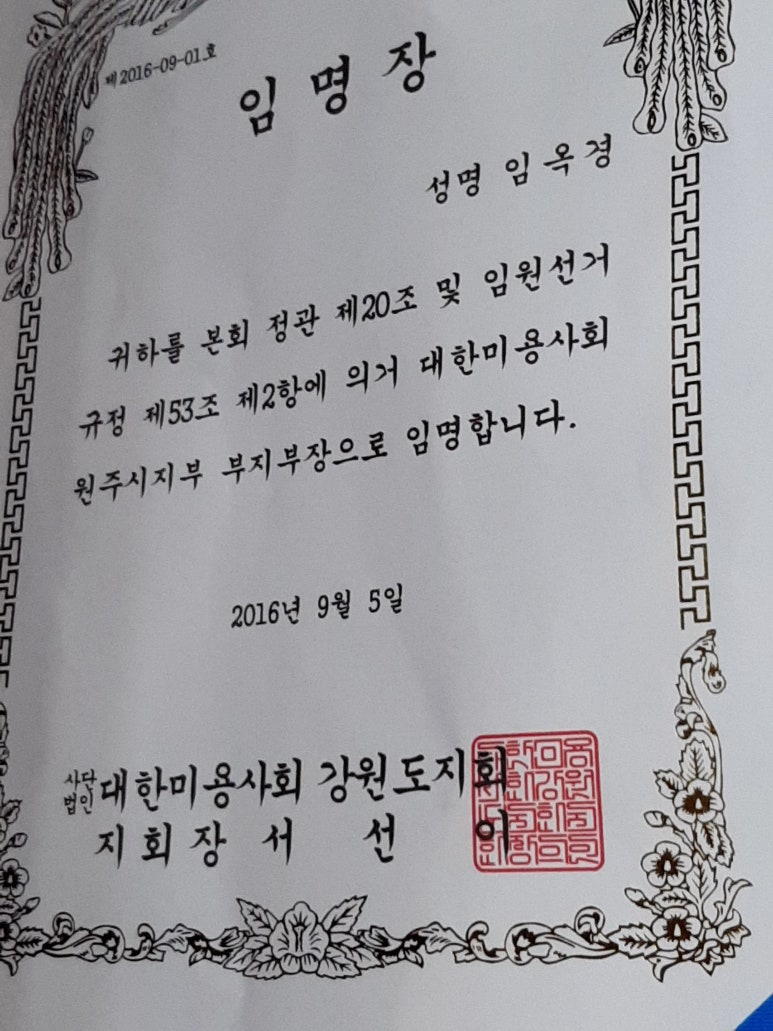 제2016-09-01호
임명장
성명 임옥경
귀하를 본회 정관 제20조 및 임원선거
규정 제53조 제2항에 의거 대한미용사회
원주시지부 부지부장으로 임명합니다.
2016년 9월 5일
사단법인 대한미용사회 강원도지회
지회장 서선이